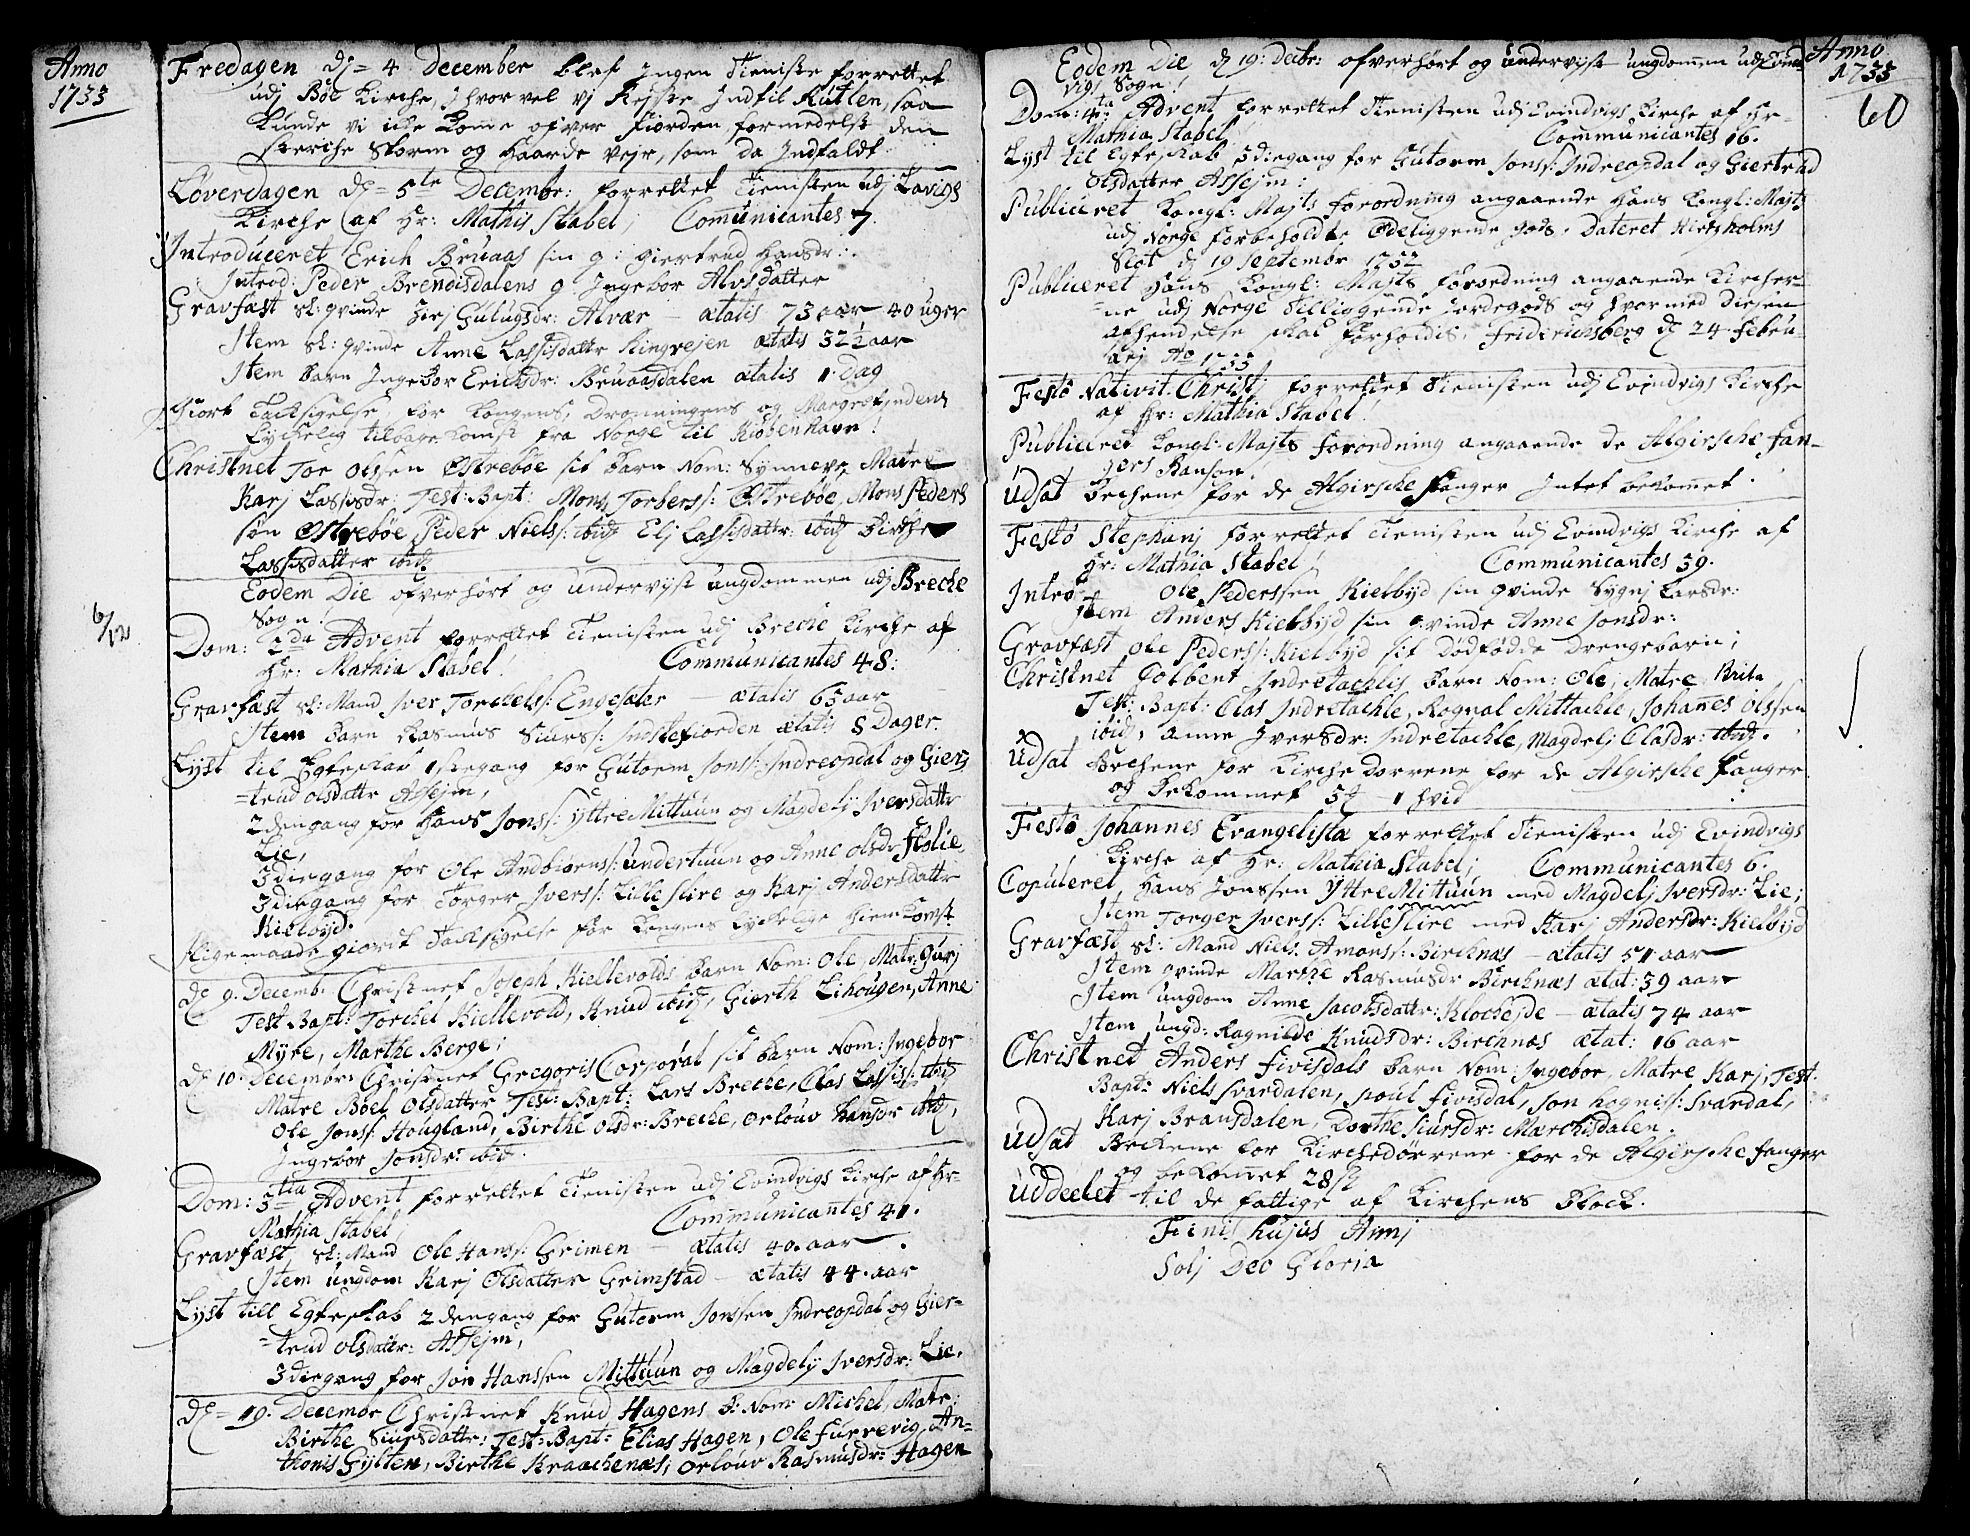 Anno
1733
Fredagen dj= 4 December blef Ingen Tieniste forrettet
udj Böe Kirche, Ihvor vel vj Rejste Indtil Rutlen, saa
kunde vi icke komme ofver fiorden formedelst den
sterche Storm og haarde vejr, som da Indfaldt.
Löverdagen dj= 5te Decembr: forrettet Tienisten udj Lavigs
Kirche af Hr: Mathis Stabel, Comunicantes 7.
Introduceret Erich Bruaas sin q: Giertrud Hansdr:
Introd: Peder Brendisdalens q Ingebor Alvsdatter
Gravfæst sl: qvinde Zirj Gulugsdr: Alvær – ætatis 73 aar 40 uger
Item sl: qvinde Anne Lassisdattr Ringrejen ætatis 32½ aar
Item barn Ingebor Erichsdr: Bruaasdalen ætatis 1 Dag
Giort Tacksigelse for Kongens, Dronningens og Margrefindens
Lyckelig tilbage komst fra Norge til Kiöbenhavn!
Christnet Tor Olssen Østreböe sit barn Nom: Synneve, Matre
Karj Lassisdr: Test: Bapt: Mons Torbers: Østreböe, Mons Peders
sön Østreböe, Peder Niels: ibid Elj Lassisdattr: ibid Birthe
Lassisdatter ibid
Eodem Die ofverhört og undervijst ungdommen udj Breche
Sogn!
6/12
Dom: 2da Advent forrettet Tienisten udj Breche Kirche af
Hr: Mathia Stabel! Communicantes 48.
Gravfæst sl: Mand Iver Torchels: Engesæter – ætatis 65 aar
Item barn Rasmus Siurs: Indstefiorden ætatis 8 Dager.
Lyst til Egteskab 1stegang for Gutorm Jons: Indreopdal og Gier-
=trud Olsdattr Assejm,
2dengang for Hans Jons: Yttre Mittuun og Magdelj Iversdattr
Lie,
3diegang for Ole Andbiörns: Undertuun og Anne Olsdr Stölie,
3diegang for Torger Ivers: Lille Slire og Karj Andersdattr
Kielbyd.
Ligemaade giordt Tacksigelse for Kongens Lyckelige hiemkomst
dj 9. Decembr Christnet Joseph Kiellevolds barn Nom: Ole, Matr: Gurj
Test Bapt: Torchel Kiellevold, Knud ibid, Gierth Lihougen, Anne
Myre, Marthe Berge;
dj 10. Decembr: Christnet Gregoris Corporal sit barn Nom: Ingebor
Matre Böel Olsdatter Test: Bapt: Lars Breche, Clas Lassis: ibid
Ole Jons: Hougland, Birthe Olsdr: Breche, Orlouv Hansdr ibid,
Ingebor Jonsdr: ibid.
Dom: 3tia Advent forrettet Tienisten udj Evindvigs Kirche af Hr-
Mathia Stabel, Communicantes 41.
Gravfæst sl: Mand Ole Hans: Grimen – ætatis 40. aar
Item ungdom Karj Olsdatter Grimstad – ætatis 44. aar
Lyst till Egteskab 2dengang for Gutorm Jonssen Indreopdal og Gier-
=trud Olsdattr: Assejm,
3diegang for Jon Hanssen Mittuun og Magdelj Iversdr: Lie.
dj= 19. Decembr Christnet Knud Hagens B: Nom: Michel, Matr:
Birthe Siursdattr: Test: Bapt: Elias Hagen, Ole Furrevig, An-
thonis Gylten, Birthe Kraachenæs, Orlouv Rasmusdr: Hagen
Anno
1733
60
Eodem Die d 19: Decbr: ofverhört og undervijst ungdommen udj Evind-
vigs Sogn!
Dom: 4ta Advent forrettet Tienisten udj Evindvigs Kirche af Hr-
Mathia Stabel! Communicantes 16.
Lyst til Egteskab 3diegang for Gutorm Jons: Indreopdal og Giertrud
Olsdatter Assejm:
Publiceret Kongl: Majts forordning angaaende Hans Kongl: Majts
udj Norge forbeholdte Ödeliggende gods. Dateret Hirtsholms
Slot d 19 Septembr 1732
Publiceret Hans Kongl: Majts forordning angaaende Kircher-
=ne udj Norge tilliggende jordegods og hvormed diesen
afhendelse skal forholdis. Friderichsberg dj 24 Febru-
arj Ao 1733
Festo Nativit: Christj forrettet Tienisten udj Evindvigs Kirche
af Hr: Mathia Stabel.
Publiceret Kongl: Majts forordning angaaende de Algirsche Fan-
gers Ranson!
Udsat Bechene for de Algirsche Fanger Intet bekommet.
Festo Stephanj forrettet Tienisten udj Evindvigs Kirche af
Hr: Mathia Stabel! Communicantes 39.
Intro: Ole Pederssen Kielbyd sin qvinde Sygnj Larsdr:
Item Anders Kielbyd sin qvinde Anne Jonsdr:
Gravfæst Ole Peders: Kielbyd sit Dödfödde Drengebarn;
Christnet Colbent Indretachlis barn Nom: Ole, Matre Brita
Test: Bapt: Clas Indretachle, Rognal Mittachle, Johannes Olssen
ibid, Anne Iversdr: Indretachle, Magdelj Clasdr: ibid.
Udsat Bechene for Kirchedorrene for de Algirsche Fanger
og bekommet 5ß 1 hvid
Festo Johannes Evangelista forrettet Tienisten udj Evindvigs
Kirche af Hr: Mathia Stabel; Communicantes 6.
Copuleret, Hans Jonssen Yttre Mittuun med Magdelj Iversdr: Lie;
Item Torger Ivers: Lille Slire med Karj Andersdr: Kielbyd
Gravfæst sl: Mand Niels Amons: Birchnæs – ætatis 51 aar
Item qvinde Marthe Rasmusdr Birchnæs ætat: 39 aar
Item ungdom Anne Jacobsdattr: Klochejde – ætatis 74 aar
Item ungd: Ragnilde Knudsdr: Birchnæs ætat: 16 aar
Christnet Anders Fivisdals barn Nom: Ingebor, Matre Karj, Test:
Bapt: Niels Svardalen, Poul Fivisdal, Jon Hognis: Svardal,
Karj Bransdalen, Dorthe Siursdr: Mærchisdalen.
Udsat Bechene for Kirchedörrene for de Algirsche Fanger
og bekommet 28ß
Uddeelet til de fattige af Kirchens Block.
Finis hujus Annj
Solj Deo Gloria